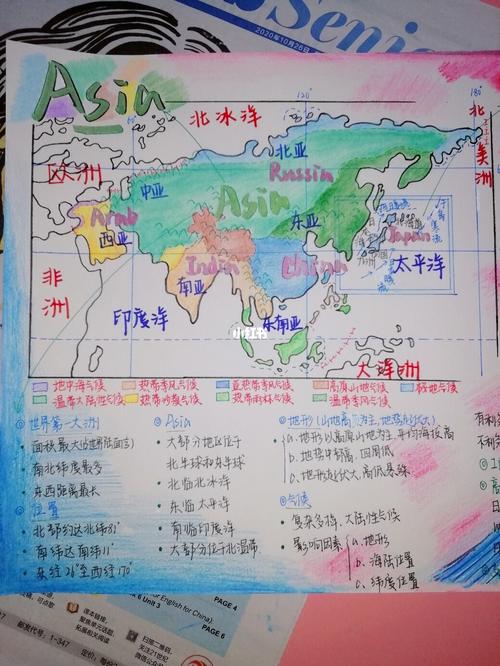 2020年10月26日
Asia
60°
120°
180°
北冰洋
北美洲
欧洲
北亚
Russia
中亚
Asia
Arab
西亚
东亚
Japan
太平洋
India
南亚
China
非洲
印度洋
东南亚
小红书
大洋洲
地中海气候
热带季风气候
亚热带季风气候
高原山地气候
极地气候
温带大陆性气候
热带沙漠气候
热带雨林气候
温带季风气候
①世界第一大洲
面积最大(占世界陆面言)
南北纬度最多
东西距离最长
②位置
北部约达北纬81°
南纬达南纬11°
东经26°至西经170°
③Asia
大部分地区位于
北半球和东半球
北临北冰洋
东临太平洋
南临印度洋
大部分位于北温带
④地形(山地高原为主,地势起伏大)
a.地形以高原山地为主,平均海拔高
b.地势中部高,四周低
c.地形起伏大,高低悬殊
⑤气候
复杂多样,大陆性气候
影响因素
a.地形
b.海陆位置
c.纬度位置
有利
PAGE 4
PAGE 6
Unit 3
English for China)
邮发代号:1-347